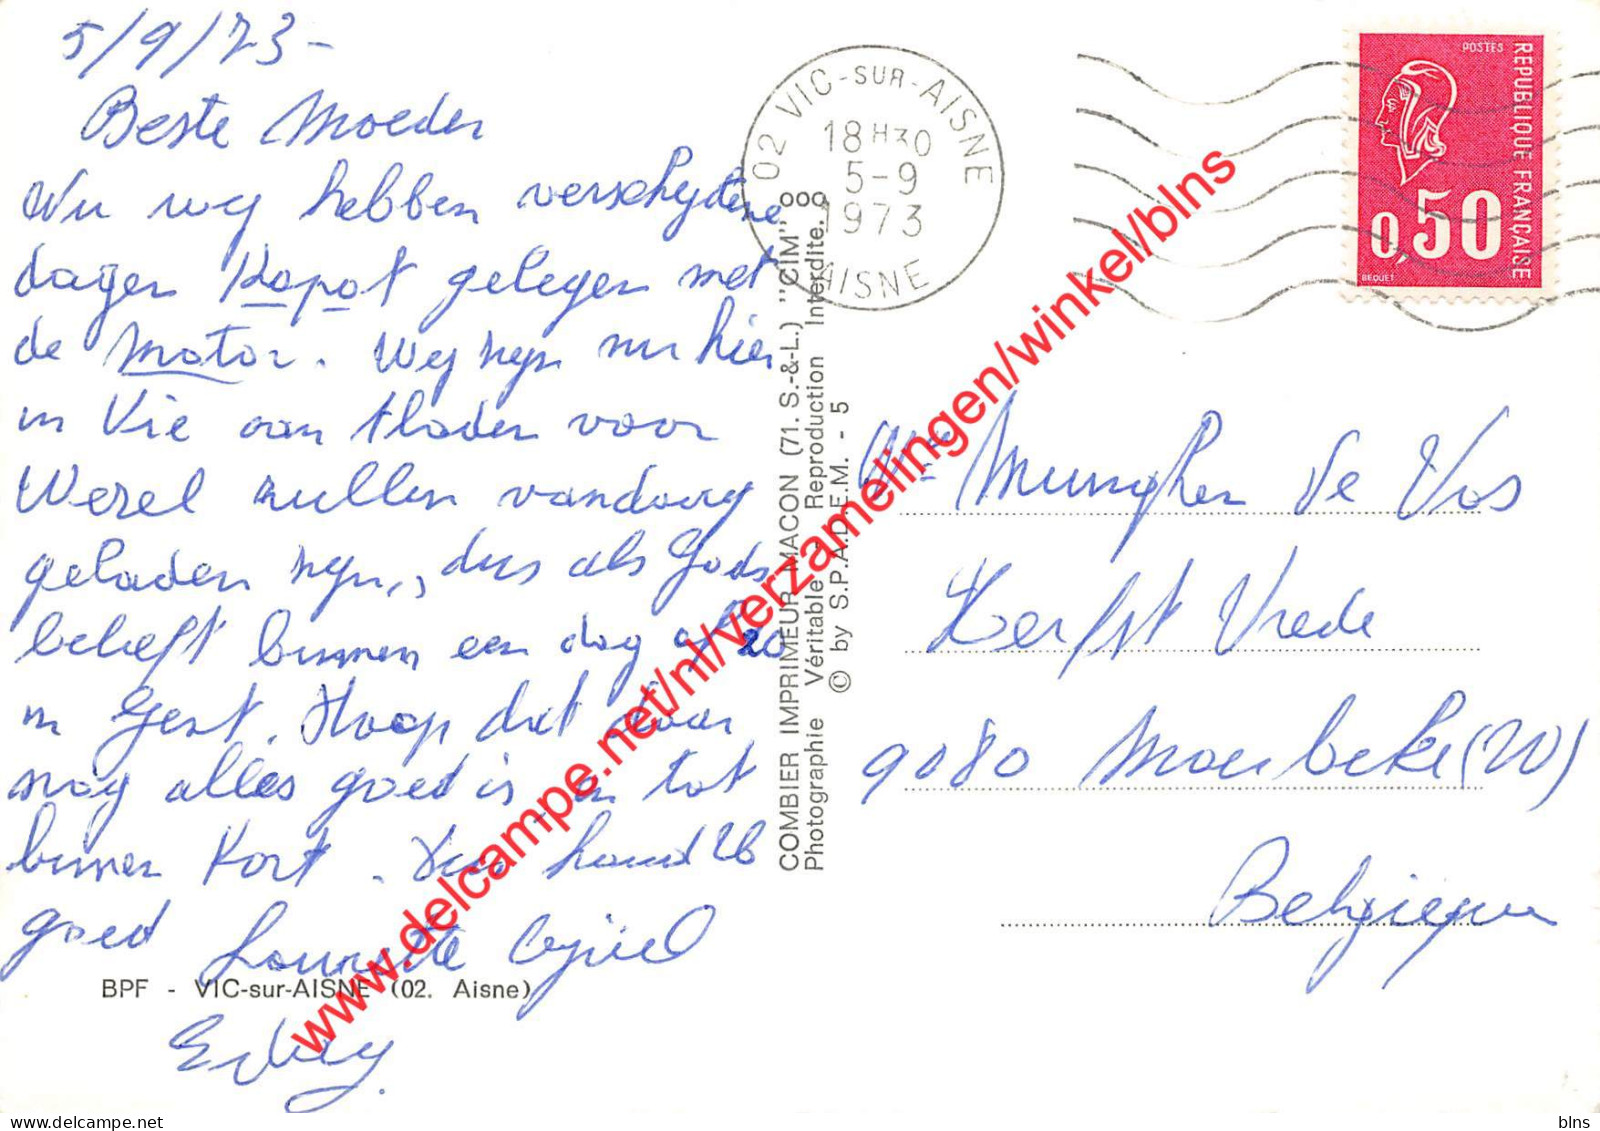 5/9/73-
Beste Moeder
Nu wy hebben verschydene
dagen Kapot gelegen met
de Motor. Wy zyn nu hier
in Vic aan t laden voor
Wezel zullen vandaag
geladen zyn, dus als Gods
belieft binnen een dag of 20
in Gent. Hoop dat daar
nog alles goed is, en tot
binnen Kort. Dus houd U
goed
BPF - VIC-sur-AISNE (02. Aisne)
COMBIER IMPRIMEUR MACON (71. S.-&-L.) "CIM"
Photographie Véritable - Reproduction Interdite.
© by S.P.A.D.E.M. - 5
02 VIC-SUR-AISNE
18H30
5-9
1973
AISNE
POSTES
REPUBLIQUE FRANÇAISE
0,50
BEQUET
De Vos
Vrede
9080 Moerbeke (W)
Belgique
www.delcampe.net/nl/verzamelingen/winkel/blns
blns